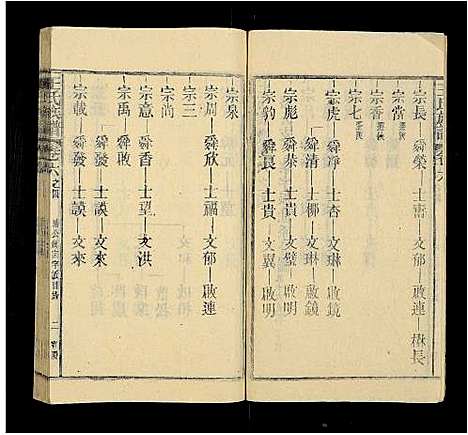 王氏族譜
宗長—舜榮—士𡩋—文郁—啟連—楙長
宗當
宗香
宗七
宗虎—舜海—士杏—文琳—啟鏡
舜清—士柳—文琳—啟鏡
宗彪—舜恭—士貴—文璧—啟明
宗豹—舜良—士貴—文翼—啟明
宗泉
宗周—舜欣—士福—文郁—啟連
宗三
宗尚
宗意—舜香—士望—文洪
宗禹—舜敢
舜發—士謨—文來
宗載—舜發—士謨—文來
王氏族譜
二